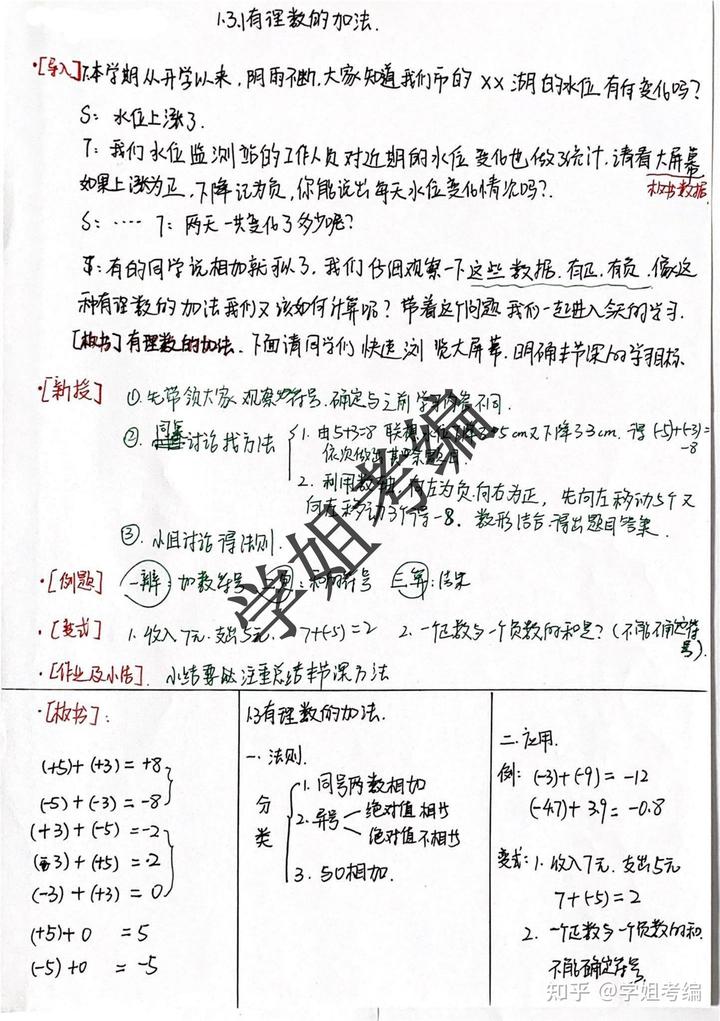 1.3.1有理数的加法.
·[导入]T:本学期从开学以来,阴雨不断,大家知道我们市的××湖的水位有何变化吗?
S: 水位上涨了.
T: 我们水位监测站的工作人员对近期的水位变化也做了统计.请看大屏幕
如果上涨为正,下降记为负,你能说出每天水位变化情况吗?.
板书数据.
S: ···· T: 两天一共变化了多少呢?
有的同学说相加就可以了.我们仔细观察一下这些数据.有正,有负.像这
种有理数的加法我们又该如何计算呢?带着这个问题我们一起进入今天的学习.
[板书]有理数的加法.下面请同学们快速浏览大屏幕.明确本节课的学习目标.
·[新授] ①先带领大家观察符号.确定与之前学习内容不同.
② 讨论找方法
1. 由5+3=8 联想水位下降 5cm又下降了3cm. 得(-5)+(-3)=
-8
依次做出其余题目.
2. 利用数轴 向左为负.向右为正, 先向左移动5个又
向左移动了3个得-8. 数形结合 得出题目答案.
③. 小组讨论得法则.
·[例题] 一辨:加数符号 二 :和的符号 三算:结果
·[变式] 1.收入7元.支出5元. 7+(-5)=2 2.一个正数与一个负数的和是?(不能确定符
号).
·[作业及小结]. 小结要 注重总结本节课方法
·[板书]:
(+5)+(+3)=+8
(-5)+(-3)=-8
(+3)+(-5)=-2
(-3)+(+5)=2
(-3)+(+3)=0
(+5)+0 =5
(-5)+0 =-5
1.3有理数的加法.
一.法则.
分类
1.同号两数相加
2.异号
绝对值相等
绝对值不相等
3.与0相加.
二.应用.
例: (-3)+(-9)=-12
(-4.7)+3.9=-0.8
变式:1.收入7元.支出5元
7+(-5)=2
2. 一个正数与一个负数的和.
不能确定符号.
学姐考编
知乎 @学姐考编